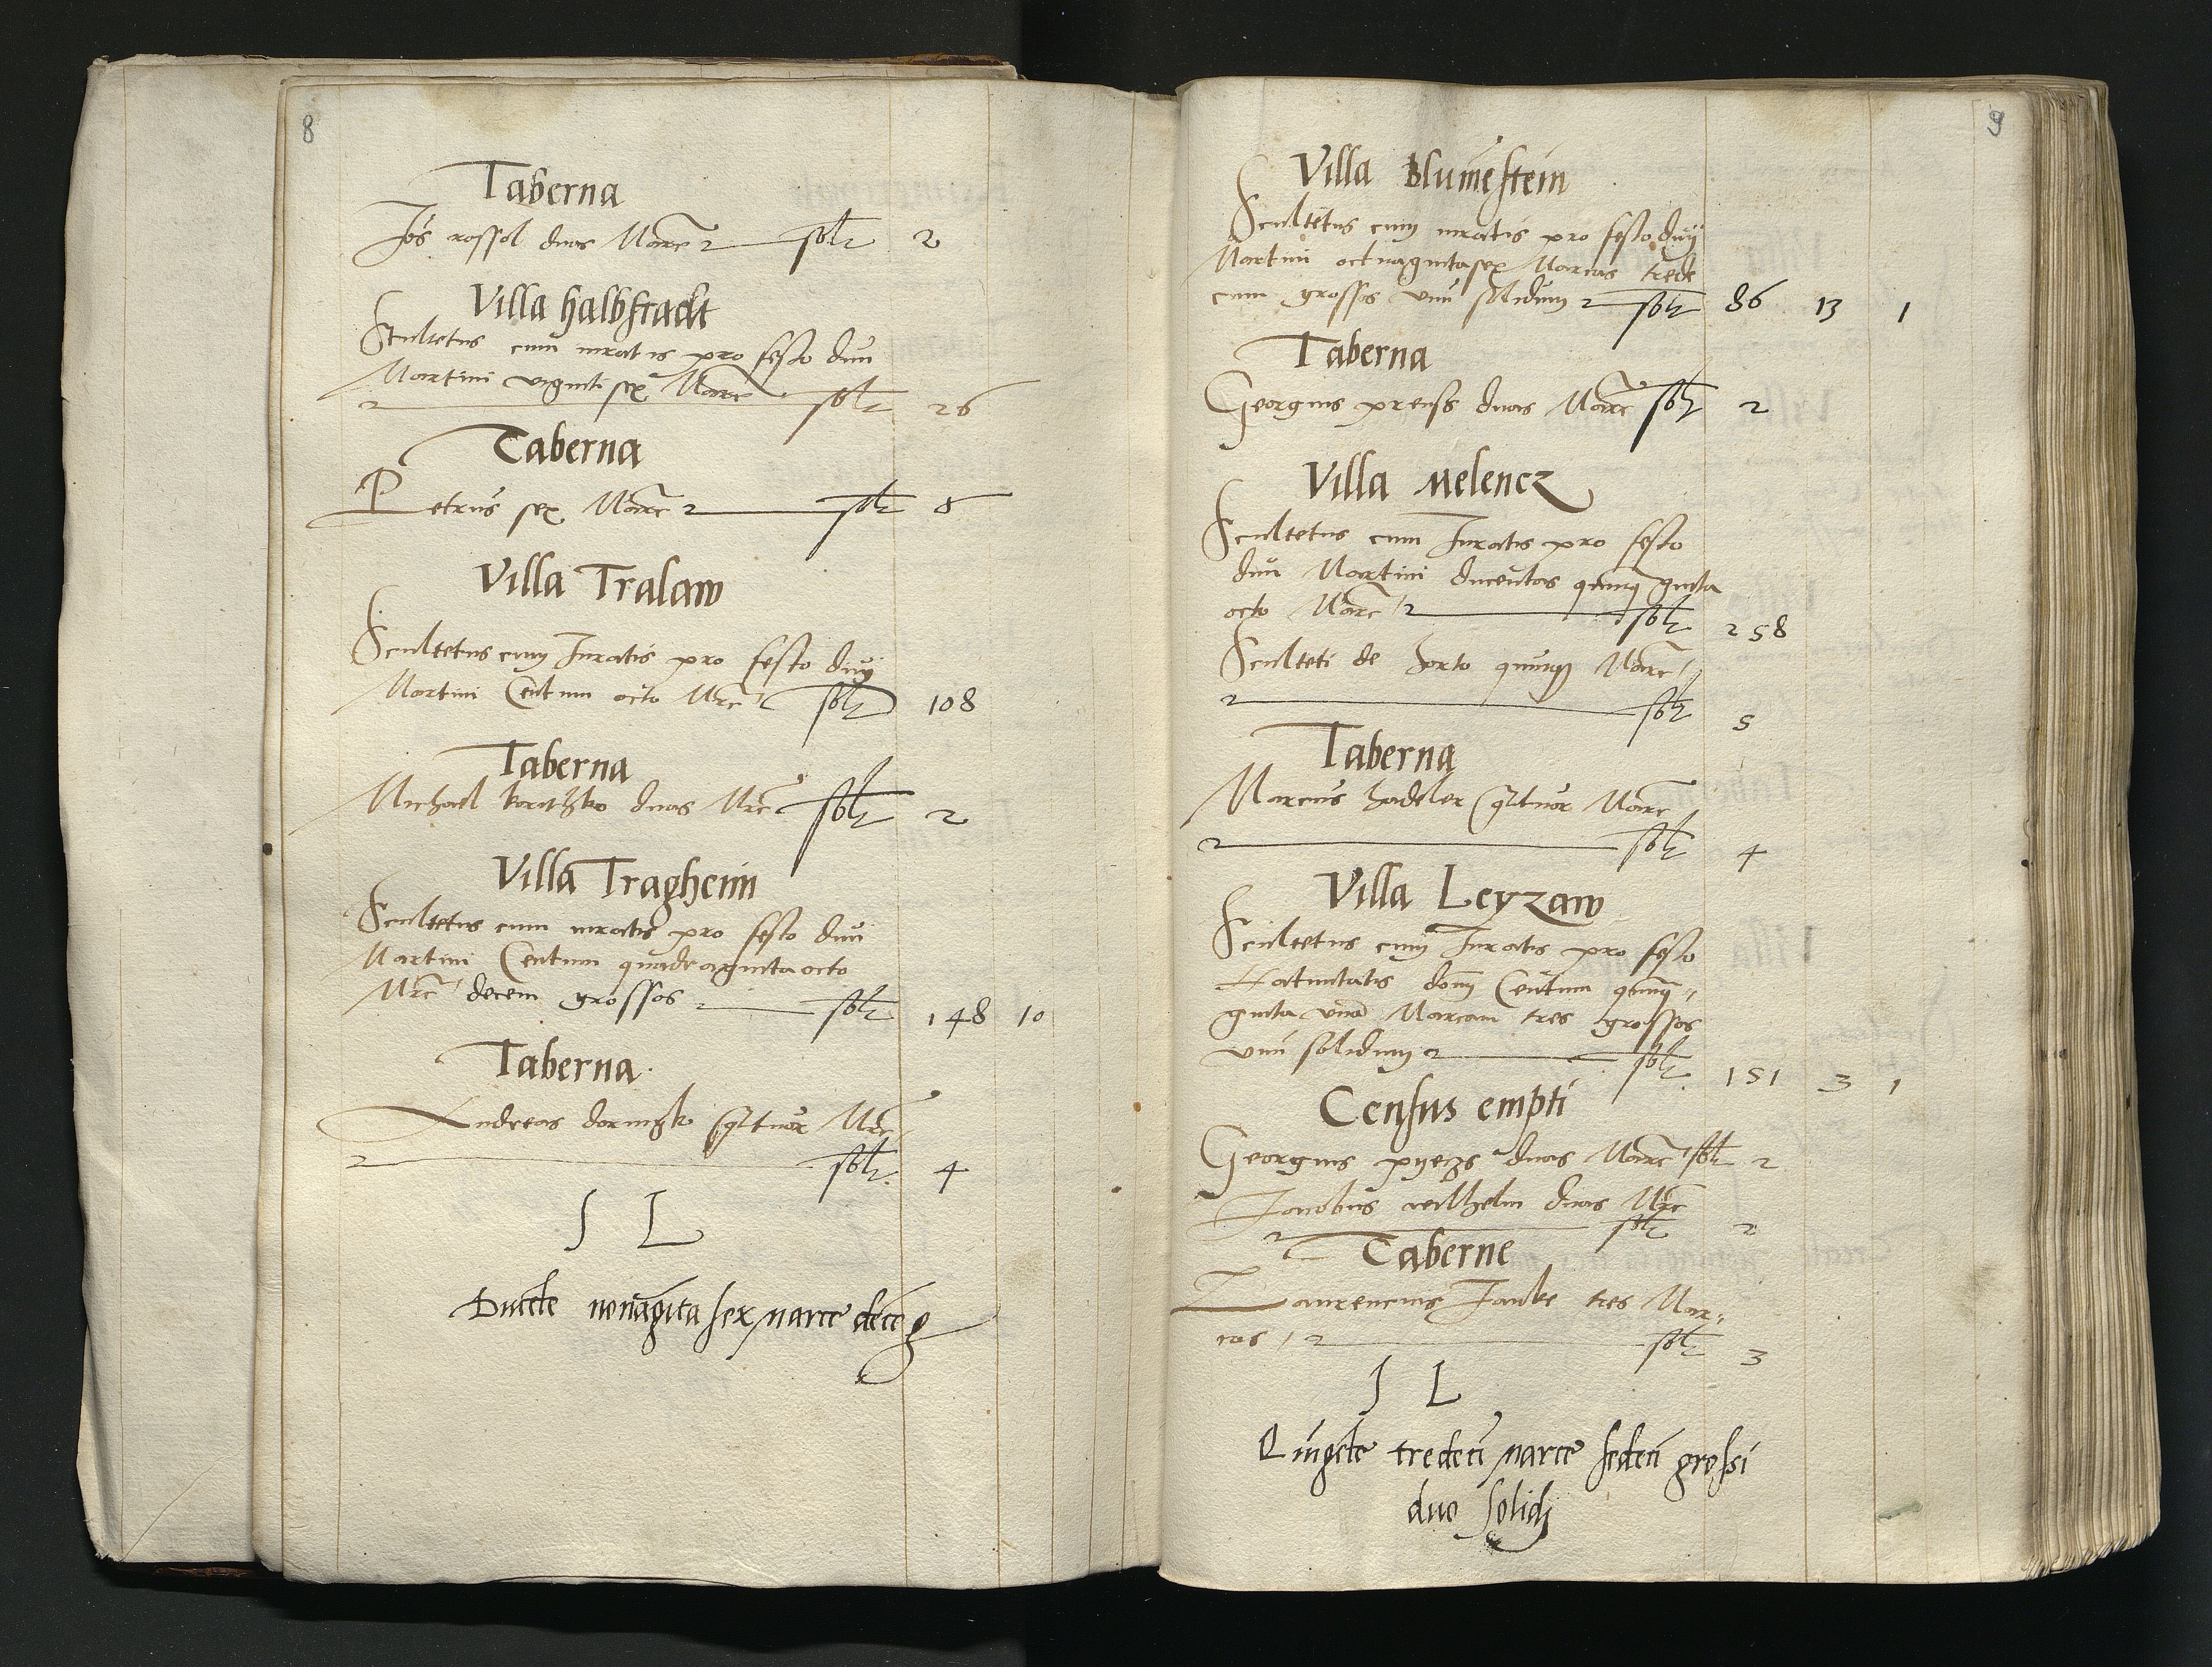 8
Taberna
Jo's rossol duas Marc solt 2
Villa halbstadt
Scultetus cum iuratis pro festo diui
Martini viginti sex Marc
solt 26
Taberna
Petrus sex Marc solt 6
Villa Tralaw
Scultetus cum Iuratis pro festo diuj
Martini Centum octo Mrc solt 108
Taberna
Michael duas Mrc solt 2
Villa Tragheim
Scultetus cum iuratis pro festo diui
Martini Centum quadraginta octo
Mrc decem grossos solt 148 10
Taberna
Andreas qatuor Mrc
solt 4
S L
Ducete nonagita sex marce dece g
9
Villa Blumestein
Scultetus cum iuratis pro festo diuj
Martini octuaginta sex Marcas trede
cim grossos unu solidum solt 86 13 1
Taberna
Georgius preuss duas Marc solt 2
Villa Melencz
Scultetus cum Iuratis pro festo
diui Martini ducentas quinquaginta
octo Marc solt 258
Sculteti de horto quinq Marc
solt 5
Taberna
Marcus hadeler qatuor Marc
solt 4
Villa Leyzaw
Scultetus cum Iuratis pro festo
Natiuitatis domj Centum quinqua
ginta una Marcam tres grossos
unu solidum solt 151 3 1
Census empti
Georgius duas Marc solt 2
Jacobus wilhelm duas Mrc
solt 2
Taberne
Laurencius Janke tres Mar
cas solt 3
S L
Quigete tredeci marce sedeci grossi
duo solidj